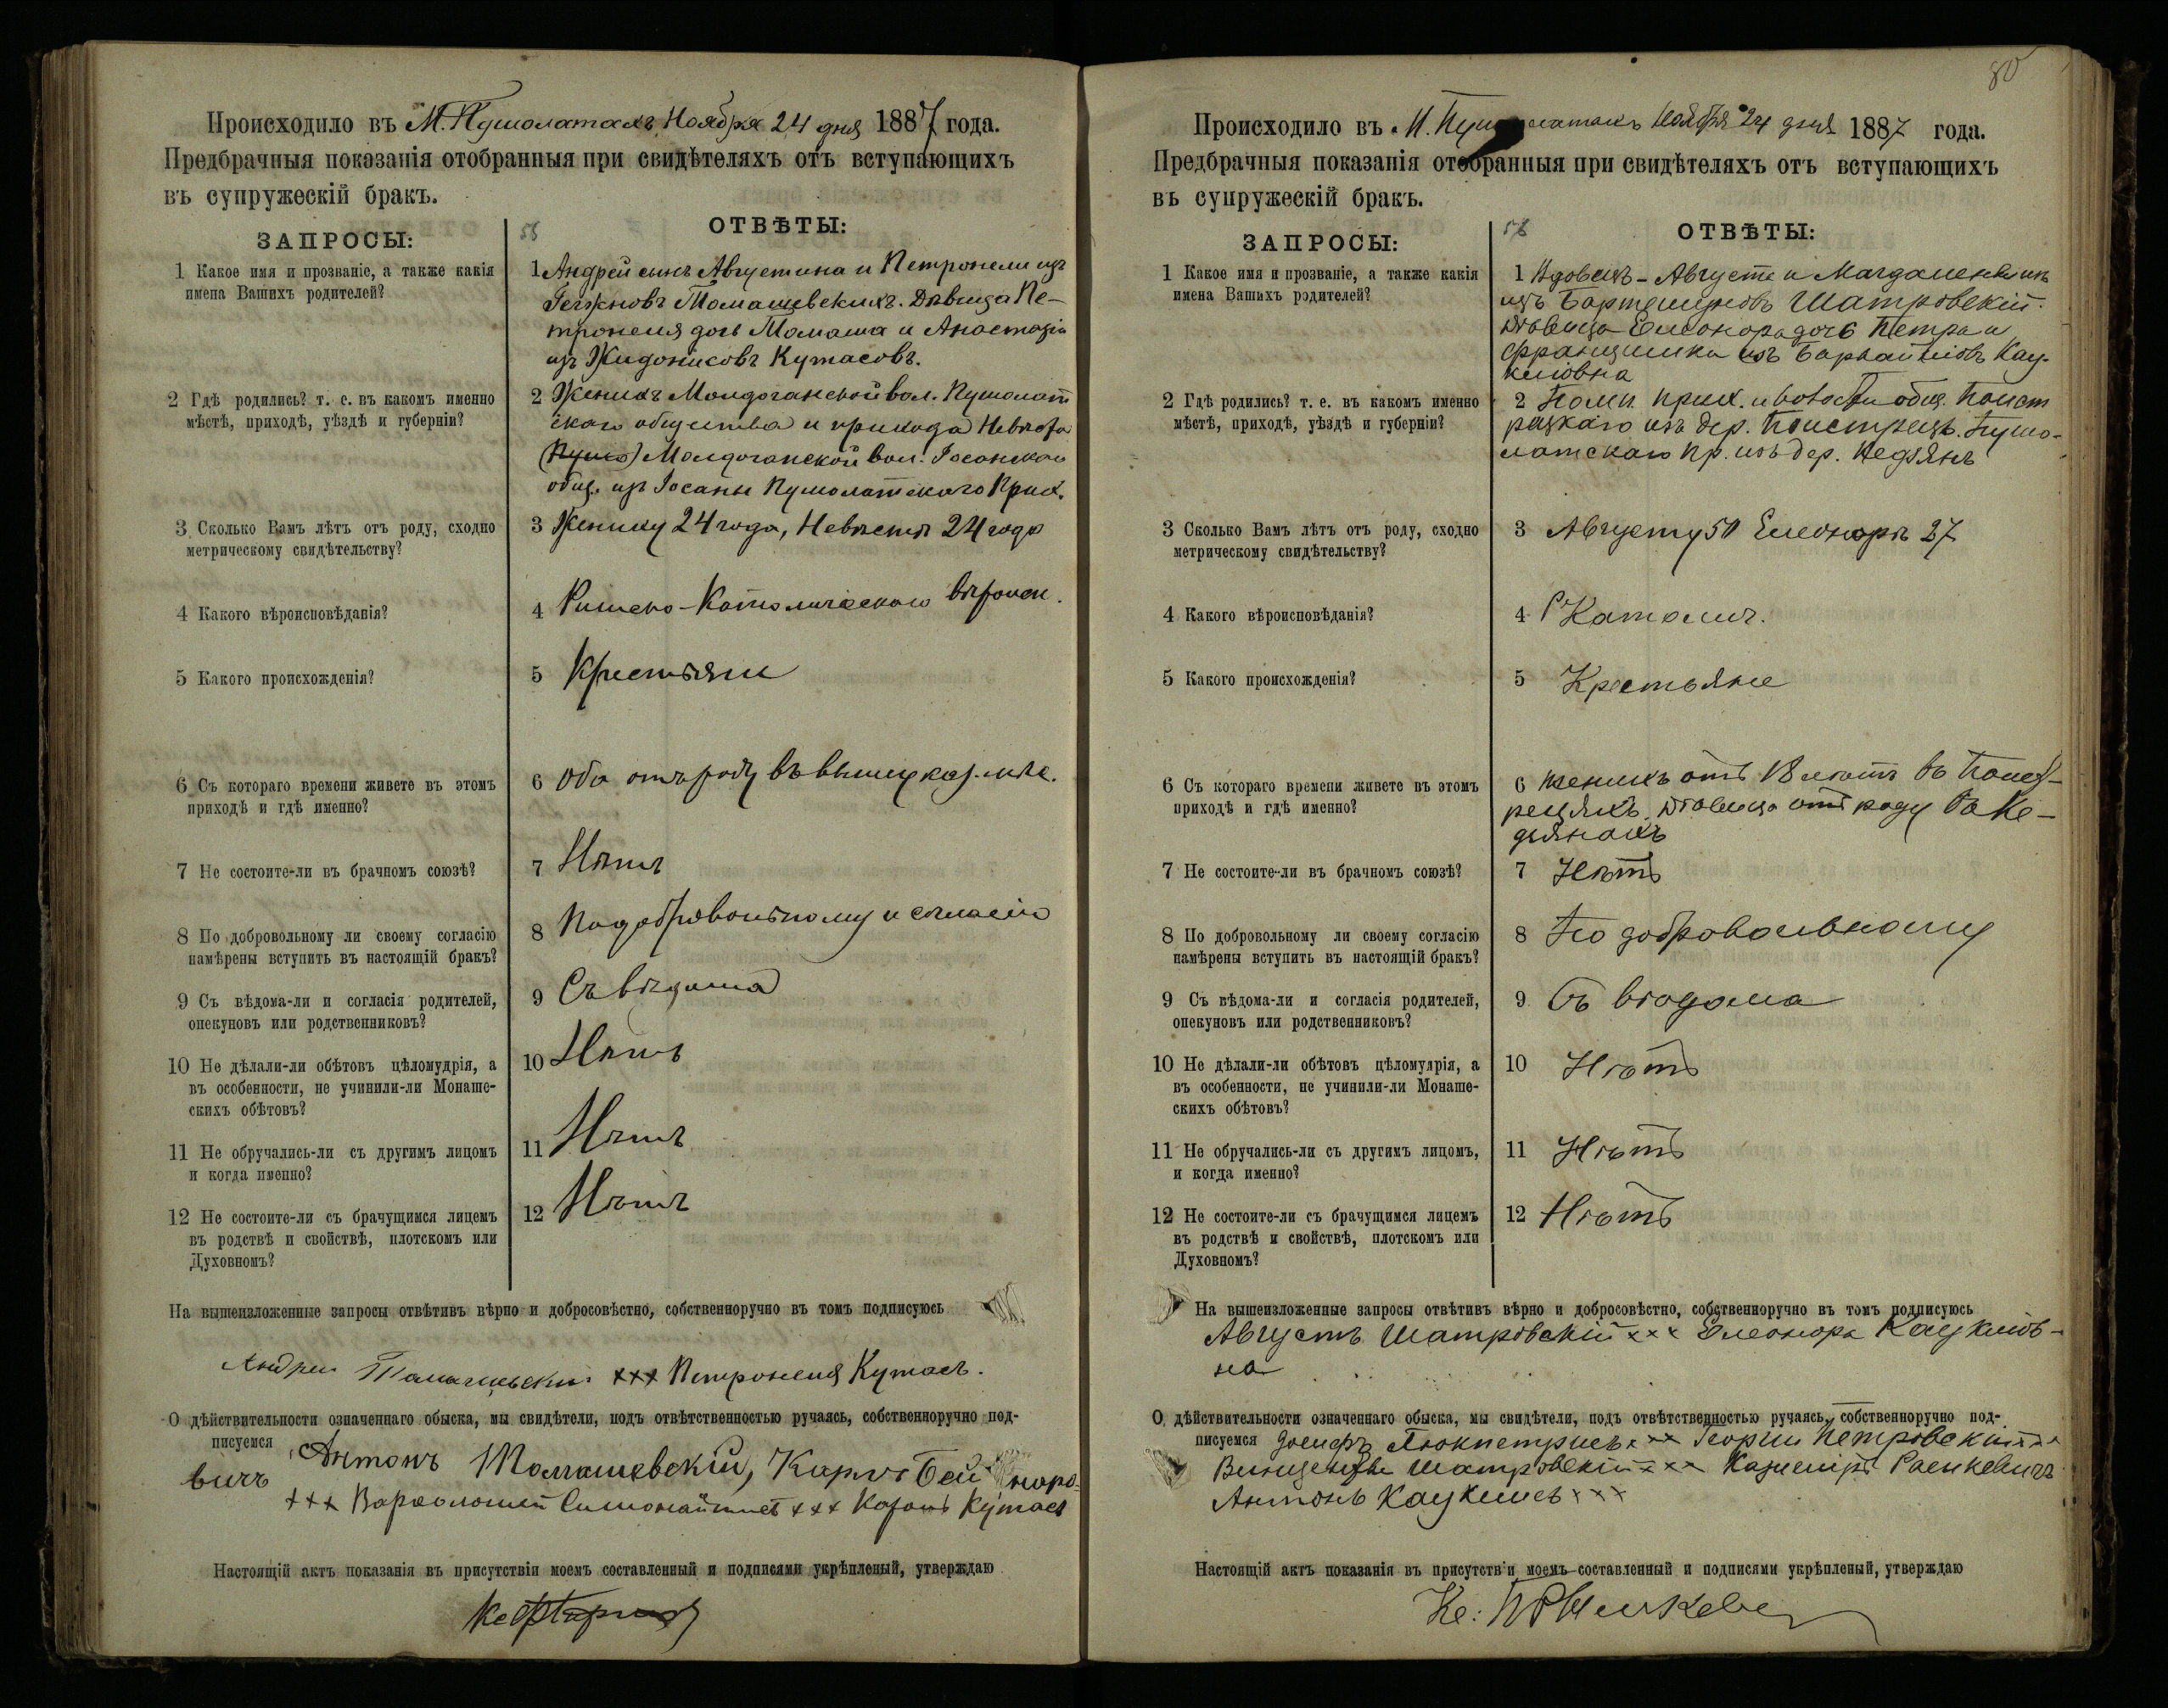 Происходило въ М. Пушолатахъ Ноября 24 дня 1887 года.
Предбрачныя показанія отобранныя при свидѣтеляхъ отъ вступающихъ
въ супружескій бракъ.
ЗАПРОСЫ:
56
ОТВѢТЫ:
1 Какое имя и прозваніе, а также какія
имена Вашихъ родителей?
1 Андрей сынъ Августина и Петронели изъ
Томашевскихъ. Дѣвица Пе-
тронеля дочь Томаша и Анастазіи
изъ Жидонисовъ Кутасовъ.
2 Гдѣ родились? т. е. въ какомъ именно
мѣстѣ, приходѣ, уѣздѣ и губерніи?
2 Женихъ вол. Пушолат
скаго общества и прихода Невѣста
(Пушо) вол.
общ. изъ Пушолатскаго Прих.
3 Сколько Вамъ лѣтъ отъ роду, сходно
метрическому свидѣтельству?
3 Жениху 24 года, Невѣстѣ 24 года
4 Какого вѣроисповѣданія?
4 Римско-Католическаго вѣроисп.
5 Какого происхожденія?
5 Крестьяни
6 Съ котораго времени живете въ этомъ
приходѣ и гдѣ именно?
6 Оба отъ роду въ вышеуказ. мѣс.
7 Не состоите-ли въ брачномъ союзѣ?
7 Нѣтъ
8 По добровольному ли своему согласію
намѣрены вступить въ настоящій бракъ?
8 По добровольному и согласію
9 Съ вѣдома-ли и согласія родителей,
опекуновъ или родственниковъ?
9 Съ вѣдома
10 Не дѣлали-ли обѣтовъ цѣломудрія, а
въ особенности, не учинили-ли Монаше-
скихъ обѣтовъ?
10 Нѣтъ
11 Не обручались-ли съ другимъ лицомъ
и когда именно?
11 Нѣтъ
12 Не состоите-ли съ брачущимся лицемъ
въ родствѣ и свойствѣ, плотскомъ или
Духовномъ?
12 Нѣтъ
На вышеизложенные запросы отвѣтивъ вѣрно и добросовѣстно, собственноручно въ томъ подписуюсь
Андрей Томашевскій ххх Петронеля Кутасъ.
О дѣйствительности означеннаго обыска, мы свидѣтели, подъ отвѣтственностью ручаясь, собственноручно под-
писуемся Антонъ Томашевскій, Карлъ Бей наро
вичъ
ххх Варфоломей Симонайтисъ ххх Кутасъ
Настоящій актъ показанія въ присутствіи моемъ составленный и подписями укрѣпленый, утверждаю
80
Происходило въ М. Пушолатахъ Ноября 24 дня 1887 года.
Предбрачныя показанія отобранныя при свидѣтеляхъ отъ вступающихъ
въ супружескій бракъ.
ЗАПРОСЫ:
56
ОТВѢТЫ:
1 Какое имя и прозваніе, а также какія
имена Вашихъ родителей?
1 Вдовецъ - Августъ и Магдалены
изъ Шатровскій.
дѣвица Елеонора дочь Петра и
Францишки изъ Кау-
киловна
2 Гдѣ родились? т. е. въ какомъ именно
мѣстѣ, приходѣ, уѣздѣ и губерніи?
2 прих. и волости общ. Поист
рацкаго изъ дер. Пушо-
латскаго пр. изъ дер. Кедзянъ
3 Сколько Вамъ лѣтъ отъ роду, сходно
метрическому свидѣтельству?
3 Августу 50 Елеонорѣ 27
4 Какого вѣроисповѣданія?
4 Р Католич.
5 Какого происхожденія?
5 Крестьяне
6 Съ котораго времени живете въ этомъ
приходѣ и гдѣ именно?
6 женихъ отъ лѣтъ въ
дѣвица отъ роду въ Ке-
дзянахъ
7 Не состоите-ли въ брачномъ союзѣ?
7 Нѣтъ
8 По добровольному ли своему согласію
намѣрены вступить въ настоящій бракъ?
8 По добровольному
9 Съ вѣдома-ли и согласія родителей,
опекуновъ или родственниковъ?
9 Съ вѣдома
10 Не дѣлали-ли обѣтовъ цѣломудрія, а
въ особенности, не учинили-ли Монаше-
скихъ обѣтовъ?
10 Нѣтъ
11 Не обручались-ли съ другимъ лицомъ,
и когда именно?
11 Нѣтъ
12 Не состоите-ли съ брачущимся лицемъ
въ родствѣ и свойствѣ, плотскомъ или
Духовномъ?
12 Нѣтъ
На вышеизложенные запросы отвѣтивъ вѣрно и добросовѣстно, собственноручно въ томъ подписуюсь
Августъ Шатровскій ххх Елеонора Каукилов-
на
О дѣйствительности означеннаго обыска, мы свидѣтели, подъ отвѣтственностью ручаясь, собственноручно под-
писуемся ххх Георгій Петровскій ххх
Винцентій Шатровскій ххх Казимиръ Раснкевичъ
Антонъ Каукилисъ ххх
Настоящій актъ показанія въ присутствіи моемъ составленный и подписями укрѣпленый, утверждаю